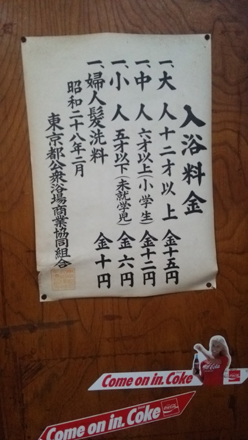 入浴料金
一、大人 十二才以上 金十五円
一、中人 六才以上小学生 金十二円
一、小人 五才以下(未就学児) 金六円
一、婦人髪洗料 金十円
昭和二十八年二月
東京都公衆浴場商業協同組合
Come on in. Coke
Come on in. Coke